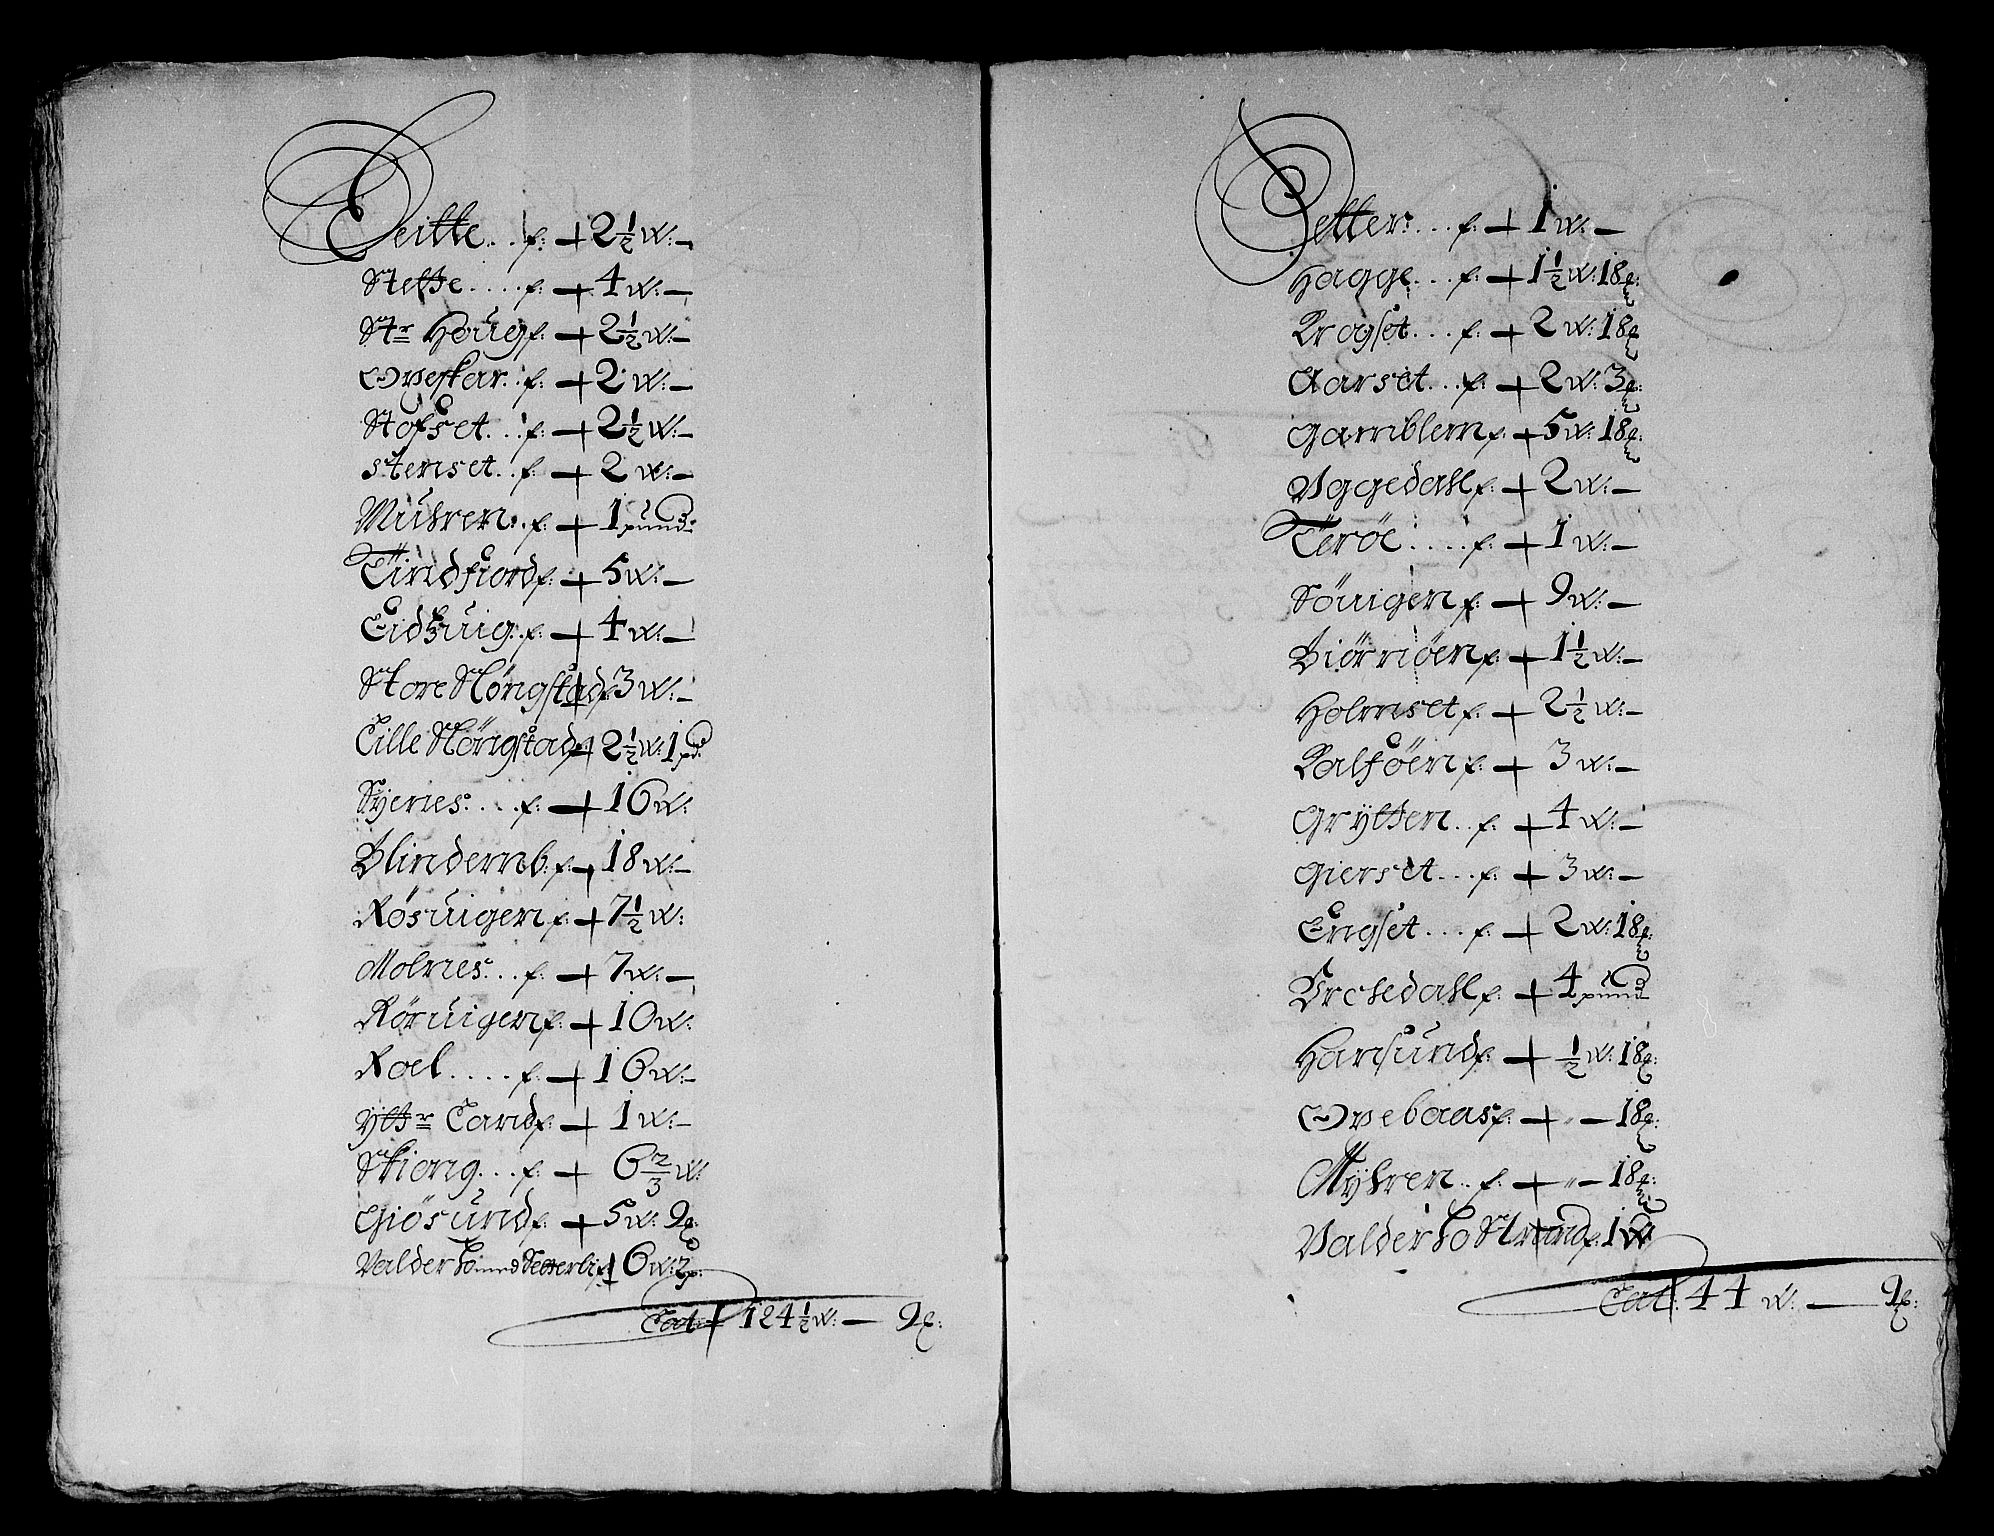 Leitte... f: + 2 1/2 w: —
Steffe.... f: + 4 w: —
Str Houg f: + 2 1/2 w: —
Opeskar.. f: + 2 w: —
Stofset... f: + 2 1/2 w: —
Stenset.. f: + 2 w: —
Muhren.. f: + 1 pund:
Tüindfiord f: + 5 w: —
Eidzuig.. f: + 4 w: —
Store Nörigstad f: + 3 w: —
Lille Nörigstad f: + 2 1/2 w: 1 pd:
Syenes:... f: + 16 w:
Blindernb. f: + 18 w: —
Røsuigen f: + 7 1/2 w:
Molnes:.. f: + 7 w: —
Røruigen f: + 10 w:
Roel..... f: + 16 w: —
Yttr Land f: + 1 w: —
Skiong... f: + 6 2/3 w:
Giösund f: + 5 w: 9
Valderho med Setterli f: + 6 w: 2 p:
Lat: + 124 1/2 w: — 9
Setter:.... f: + 1 w: —
Hagge... f: + 1 1/2 w: 18
Krogset... f: + 2 w: 18
Aarset... f: + 2 w: 3
Gamblem f: + 5 w: 18
Uggedahl f: + 2 w: —
Terøe..... f: + 1 w: —
Söuigen f: + 9 w: —
Biörnöen f: + 1 1/2 w: —
Holmset f: + 2 1/2 w: —
Kalföen f: + 3 w: —
Grÿtten.. f: + 4 w: —
Gierset... f: + 3 w: —
Engset... f: + 2 w: 18
Brekedahl f: + 4 pund
Hamsund f: + 1/2 w: 18
Opebaas f: + " — 18
Mÿhren.. f: + " — 18
Valderho Strand f: 1 w
Lat: 44 w: — 9